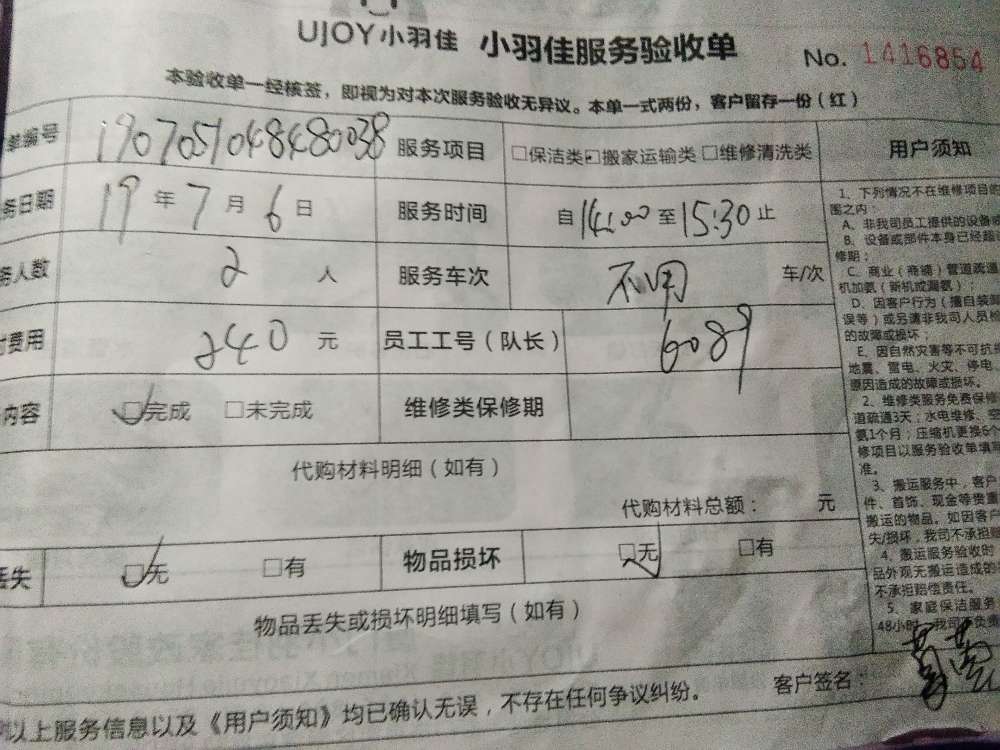 UJOY小羽佳 小羽佳服务验收单 No. 1416854
本验收单一经核签，即视为对本次服务验收无异议。本单一式两份，客户留存一份（红）
单编号 1907051048480038 服务项目 □保洁类 □搬家运输类 □维修清洗类 用户须知
务日期 19年7月6日 服务时间 自14:00至15:30止
务人数 2人 服务车次 不用 车/次
费用 240元 员工工号（队长） 6089
内容 □完成 □未完成 维修类保修期
代购材料明细（如有）
代购材料总额： 元
丢失 □无 □有 物品损坏 □无 □有
物品丢失或损坏明细填写（如有）
客户签名：
以上服务信息以及《用户须知》均已确认无误，不存在任何争议纠纷。
1、下列情况不在维修项目
围之内：
A、非我司员工提供的设备
B、设备或部件本身已经超
修期；
C、商业（商铺）管道疏通
机加氨（新机或漏氨）；
D、因客户行为（擅自装
误等）或另请非我司人员
的故障或损坏；
E、因自然灾害等不可抗
地震、雷电、火灾、停电
原因造成的故障或损坏。
2、维修类服务免费保修
道疏通3天；水电维修、空
氨1个月；压缩机更换6个
修项目以服务验收单填写
准。
3、搬运服务中，客户
件、首饰、现金等贵重
搬运的物品。如因客户
失/损坏，我司不承担
4、搬运服务验收时
品外观无搬运造成的
不承担赔偿责任。
5、家庭保洁服务
48小时